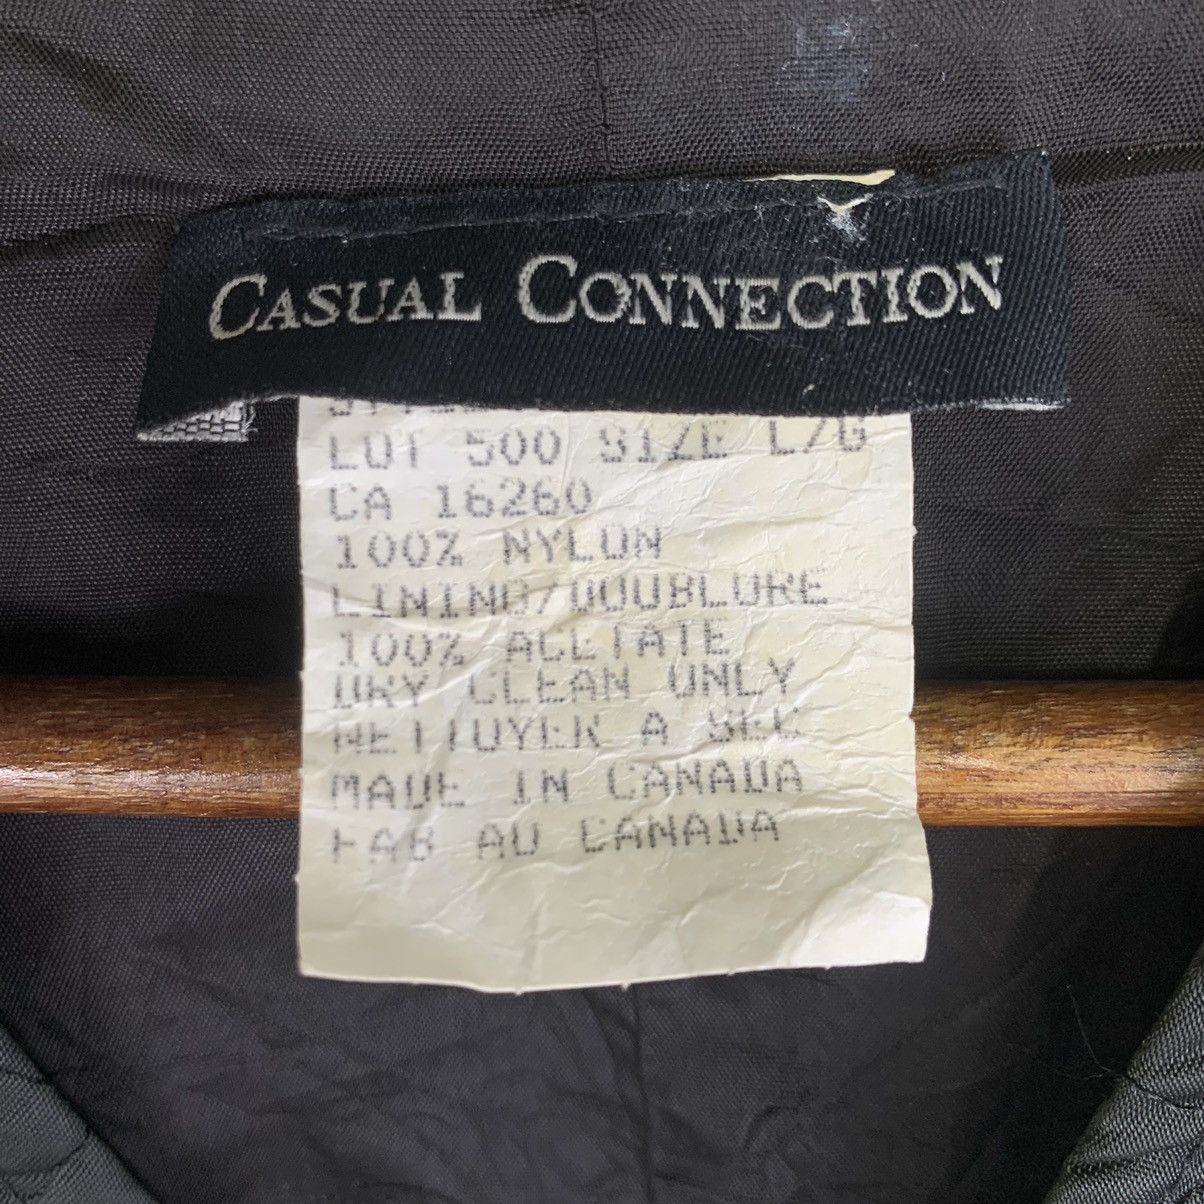 CASUAL CONNECTION
LOT 500 SIZE L/G
CA 16260
100% NYLON
LINING/DOUBLURE
100% ACETATE
DRY CLEAN ONLY
NETTOYER A SEC
MADE IN CANADA
FAB AU CANADA